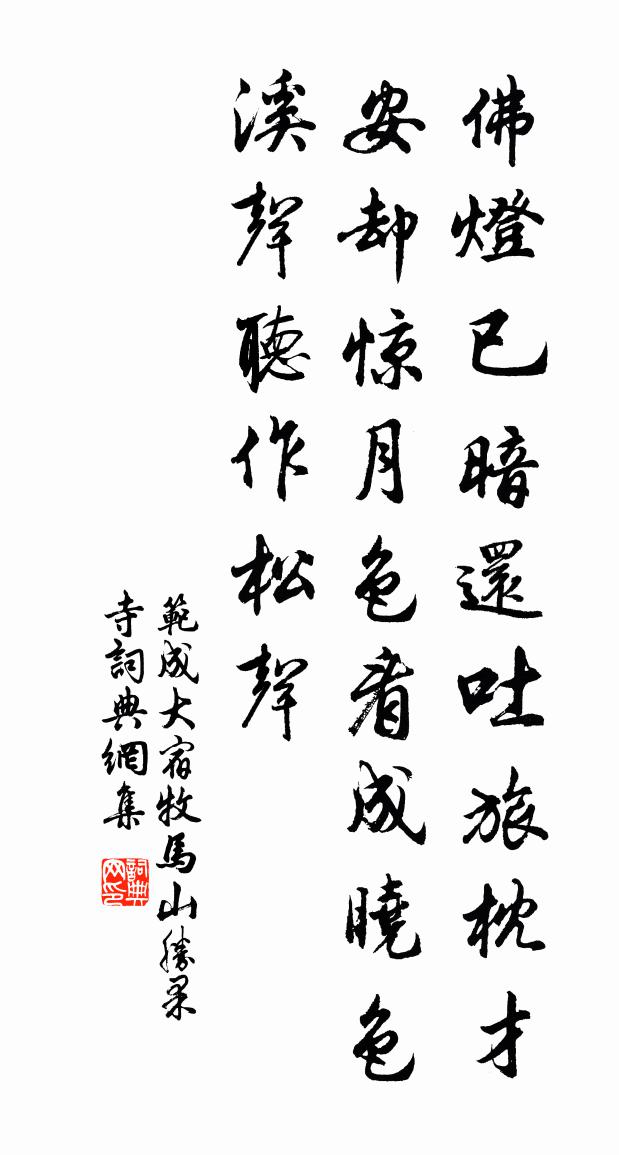 佛燈已暗還吐旅枕才
安却惊月色看成曉色
溪聲聽作松聲
範成大宿牧馬山勝果
寺詞典網集
詞典
网印